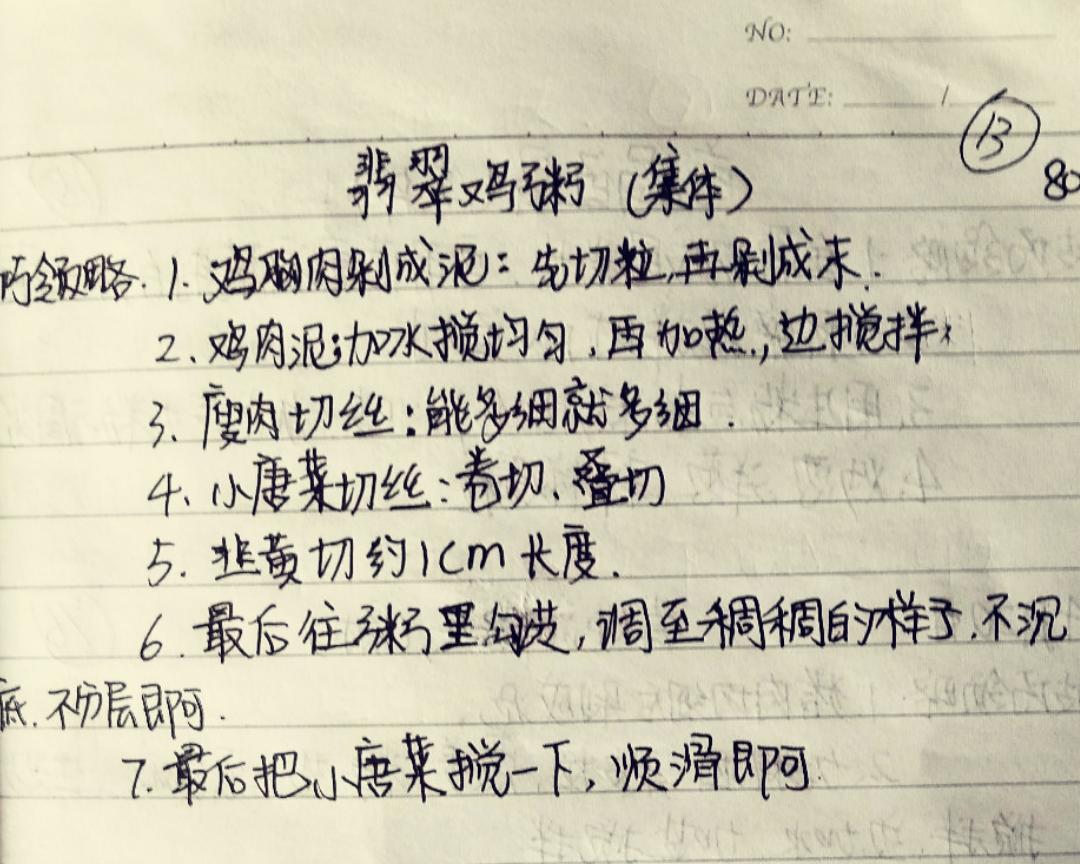 NO:
DATE: /
13
80
翡翠鸡粥（集体）
所领略.1.鸡胸肉剁成泥：先切粒,再剁成末.
2.鸡肉泥:加水搅均匀,再加热,边搅拌
3.瘦肉切丝:能多细就多细.
4.小唐菜切丝:卷切、叠切
5.韭黄切约1cm长度.
6.最后往粥里勾芡,调至稠稠的样子.不沉
底.不分层即可.
7.最后把小唐菜搅一下,顺滑即可.